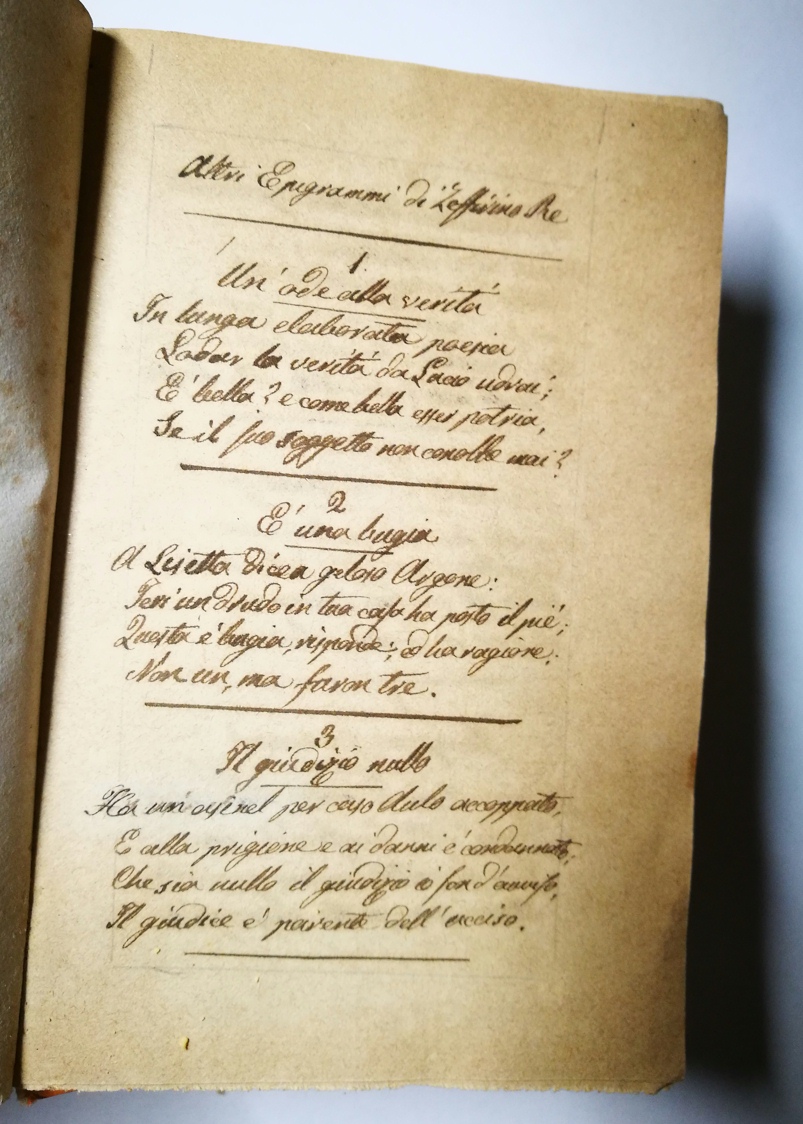 Altri Epigrammi di Zeffirino Re
1
Un' ode alla verità
In lunga elaborata poesia
Lodar la verità da Lacio udrai;
E' bella? e come bella esser potria,
Se il suo soggetto non conobbe mai?
2
E' una bugia
A Lisetta dicea geloso Argone:
Ieri un drudo in tua casa ha posto il piè;
Questa è bugia, risponde; ed ha ragione:
Non un, ma furon tre.
3
Il giudizio nullo
Ha un asinel per caso Aulo accoppato,
E alla prigione e ai danni è condannato;
Che sia nullo il giudizio io son d'avviso,
Il giudice è parente dell' ucciso.